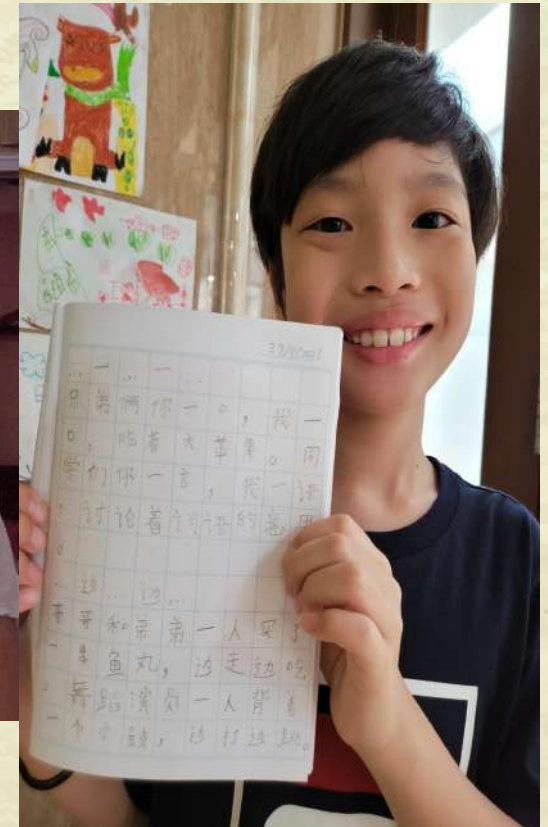 …一…一…
兄弟俩你一口，我一
口，吃着大苹果。同
学们你一言，我一语
，讨论着词语的意思
。
…边…边…
哥哥和弟弟一人买了
一串鱼丸，边走边吃
。舞蹈演员一人背着
一个小鼓，边打边跳。